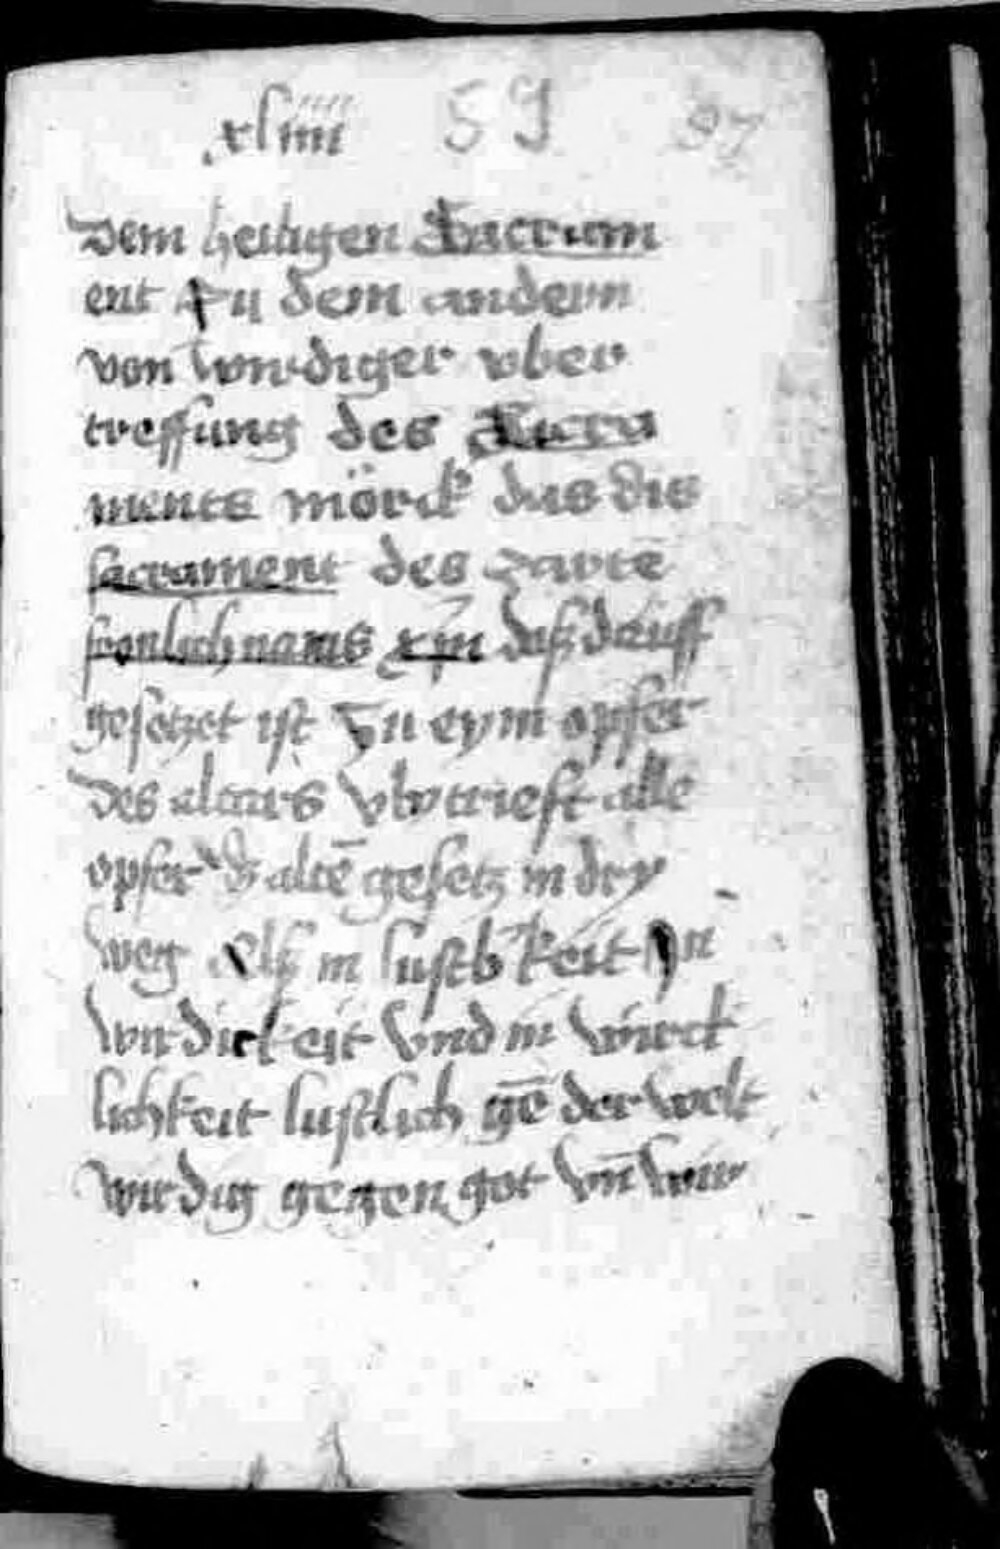 xliiii 59 97
dem heiligen Sacram
ent Zu dem andern
von wirdiger vber
treffung des Sacra
ments mörck das dis
sacrament des zartē
fronlichnams xpi daß druff
gesetzet ist Zu eym opfer
des altars vbertrieft alle
opfer d' altē gesetz in dry
weg Als in lustb'keit In
wirdickeit vnd in wirck
lichkeit lustlich gē der welt
wirdig gegen got vn̄ wir